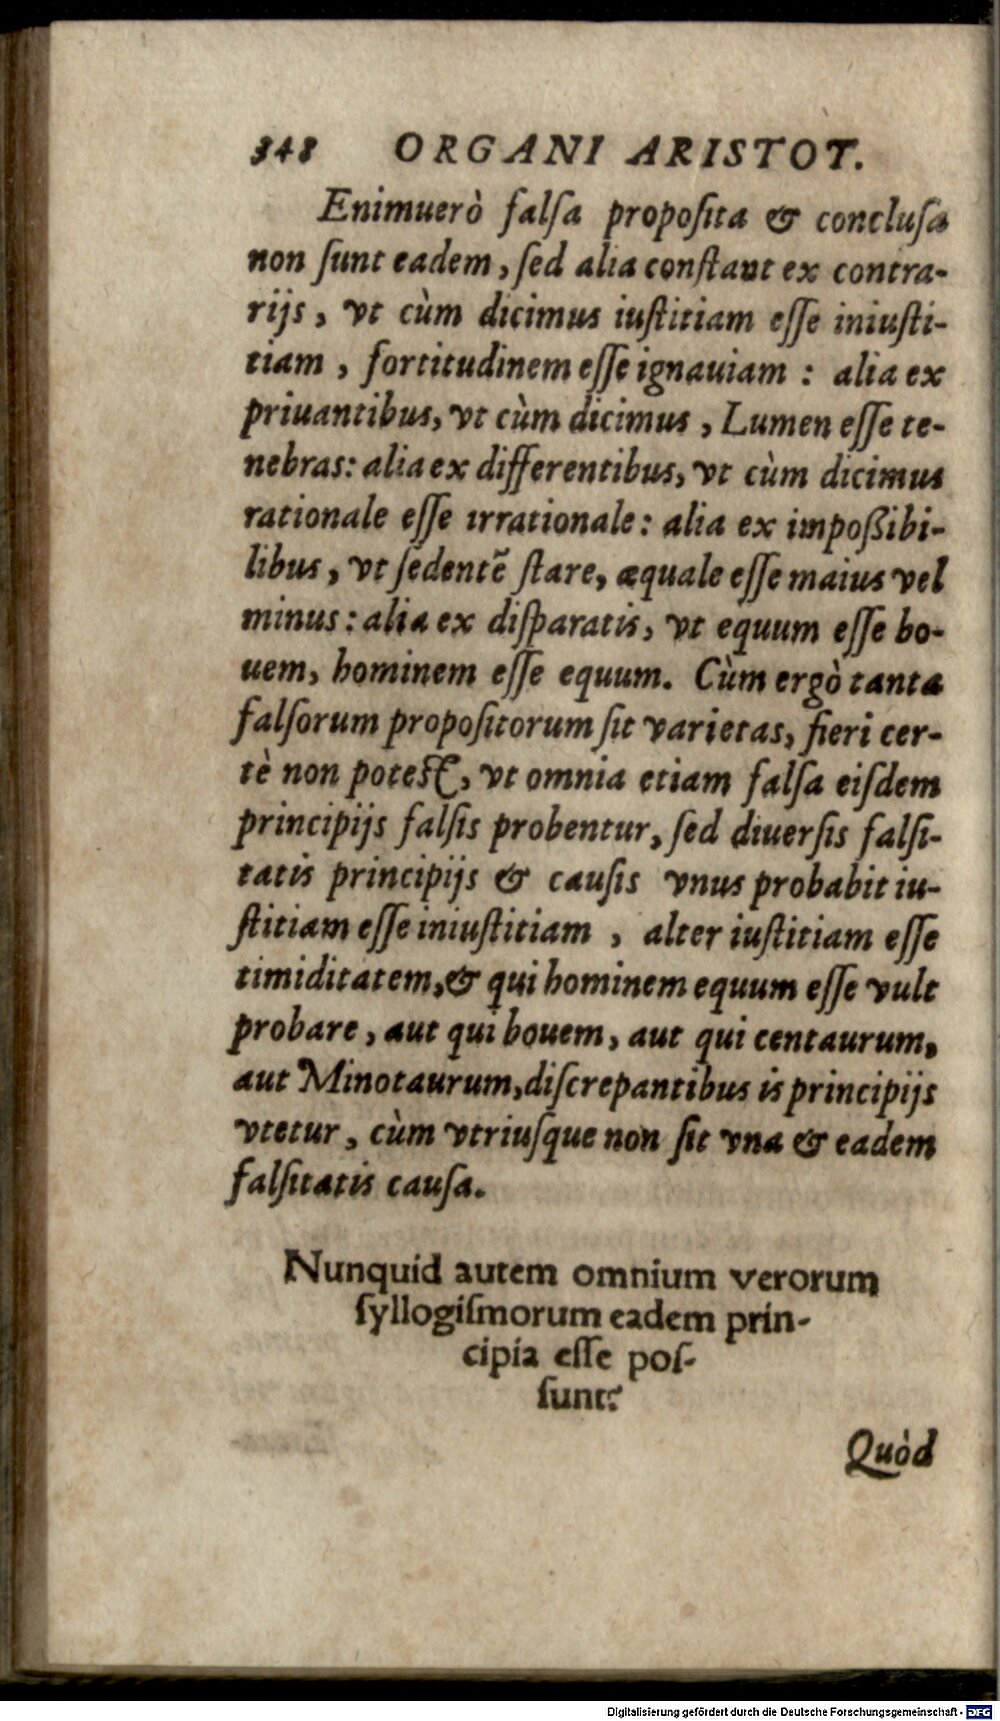 348 ORGANI ARISTOT.
Enimuerò falſa propoſita & concluſa
non ſunt eadem, ſed alia conſtant ex contra-
rijs, vt cùm dicimus iuſtitiam eſſe iniuſti-
tiam, fortitudinem eſſe ignauiam: alia ex
priuantibus, vt cùm dicimus, Lumen eſſe te-
nebras: alia ex differentibus, vt cùm dicimus
rationale eſſe irrationale: alia ex impoßibi-
libus, vt ſedentẽ ſtare, æquale eſſe maius vel
minus: alia ex diſparatis, vt equum eſſe bo-
uem, hominem eſſe equum. Cùm ergò tanta
falſorum propoſitorum ſit varietas, fieri cer-
tè non poteſt, vt omnia etiam falſa eiſdem
principijs falſis probentur, ſed diuerſis falſi-
tatis principijs & cauſis vnus probabit iu-
ſtitiam eſſe iniuſtitiam, alter iuſtitiam eſſe
timiditatem, & qui hominem equum eſſe vult
probare, aut qui bouem, aut qui centaurum,
aut Minotaurum, diſcrepantibus is principijs
vtetur, cùm vtriuſque non ſit vna & eadem
falſitatis cauſa.
Nunquid autem omnium verorum
ſyllogiſmorum eadem prin-
cipia eſſe poſ-
ſunt?
Quòd
Digitalisierung gefördert durch die Deutsche Forschungsgemeinschaft - DFG